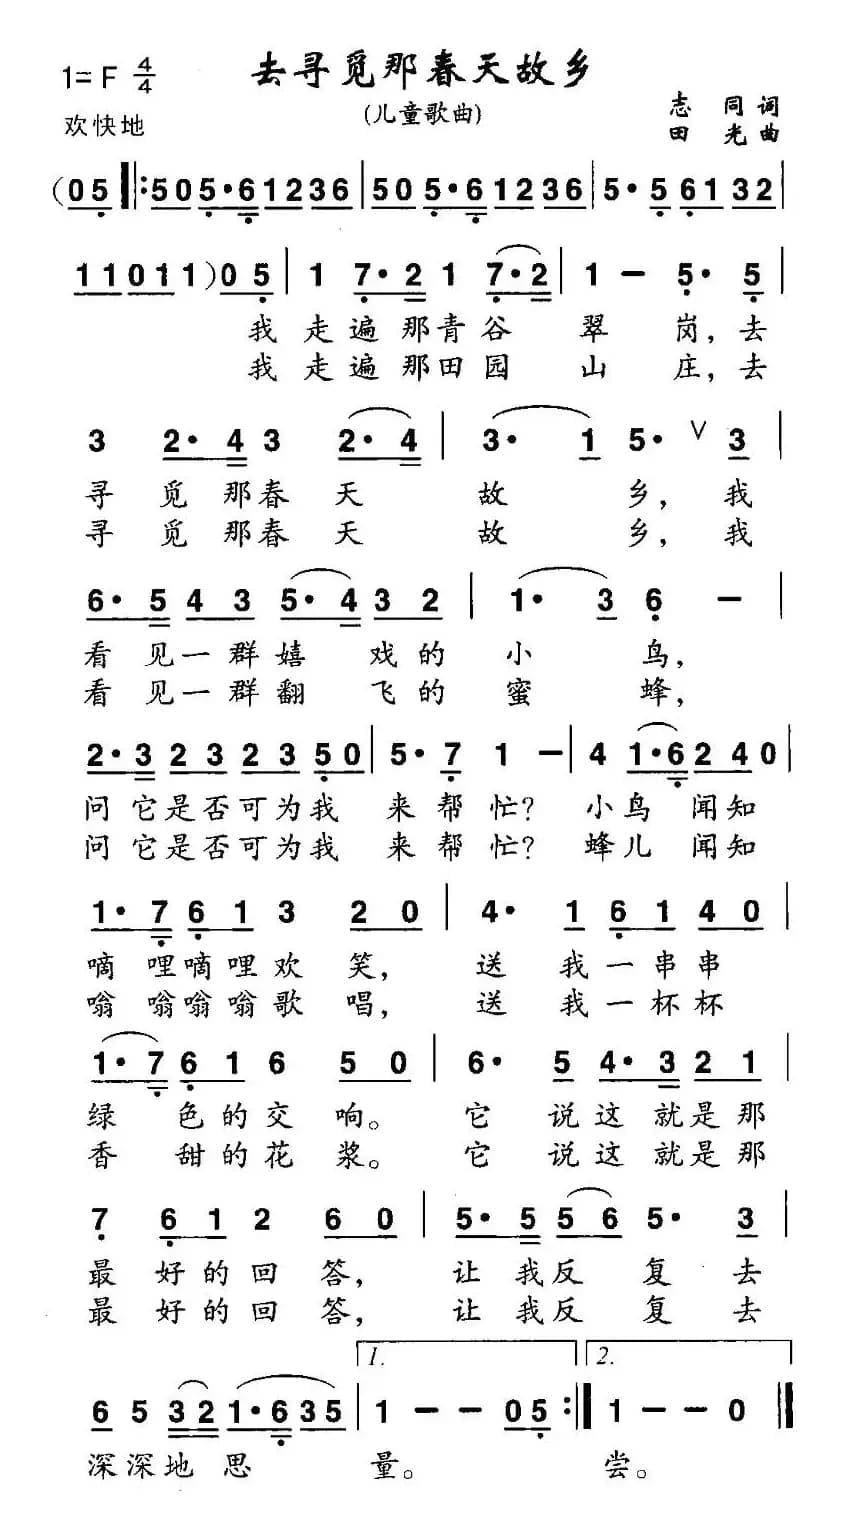 去寻觅那春天故乡
1=F 4/4
(儿童歌曲)
志 同 词
欢快地
田 光 曲
(05 ‖:505·6 1236 | 505·6 1236 | 5·5 6132 |
11011)05 | 1 7·2 1 7·2 | 1 - 5· 5 |
我走遍那青谷 翠 岗，去
我走遍那田园 山 庄，去
3 2·4 3 2·4 | 3· 1 5· ∨ 3 |
寻 觅 那春 天 故 乡，我
寻 觅 那春 天 故 乡，我
6·5 43 5·4 32 | 1· 3 6 - |
看 见一群嬉 戏的 小 鸟，
看 见一群翻 飞的 蜜 蜂，
2·3 23 23 50 | 5·7 1 - | 4 1·6 240 |
问 它是否可为我 来帮 忙？ 小鸟 闻知
问 它是否可为我 来帮 忙？ 蜂儿 闻知
1·7 61 3 20 | 4· 1 61 40 |
嘀 哩嘀哩欢 笑， 送 我一串串
嗡 嗡嗡嗡歌 唱， 送 我一杯杯
1·7 61 6 50 | 6· 5 4·3 21 |
绿 色的交 响。 它 说这 就是那
香 甜的花 浆。 它 说这 就是那
7 61 2 60 | 5·5 56 5· 3 |
最 好的回 答， 让 我反 复 去
最 好的回 答， 让 我反 复 去
1. 2.
6 5 32 1·635 | 1 - - 05 :‖ 1 - - 0 ‖
深深地 思 量。 尝。